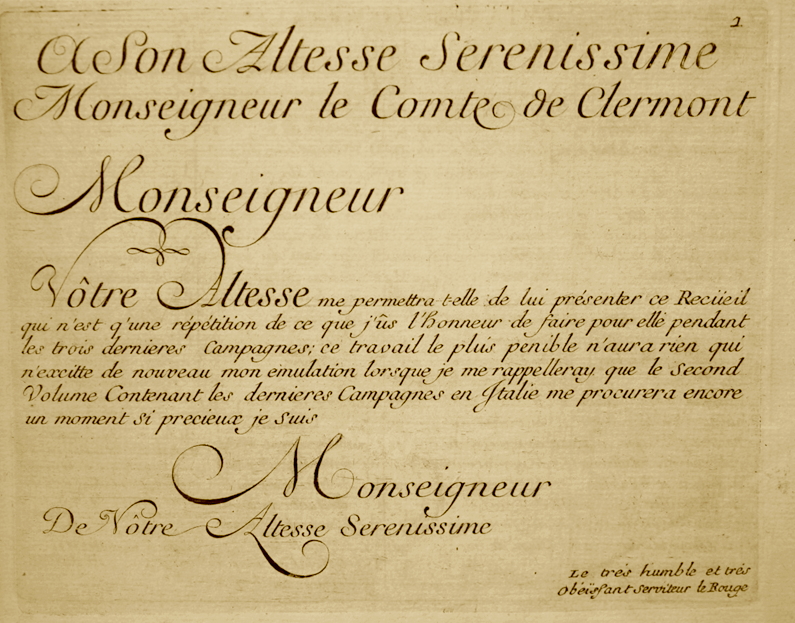 1
A Son Altesse Serenissime
Monseigneur le Comte de Clermont
Monseigneur
Vôtre Altesse me permettra t-elle de lui présenter ce Recüeil
qui n'est q'une répétition de ce que j'ûs l'honneur de faire pour elle pendant
les trois dernieres Campagnes; ce travail le plus penible n'aura rien qui
n'excitte de nouveau mon emulation lorsque je me rappelleray que le Second
Volume Contenant les dernieres Campagnes en Italie me procurera encore
un moment si precieux je suis
Monseigneur
De Vôtre Altesse Serenissime
Le trés humble et trés
Obéïssant Serviteur le Rouge